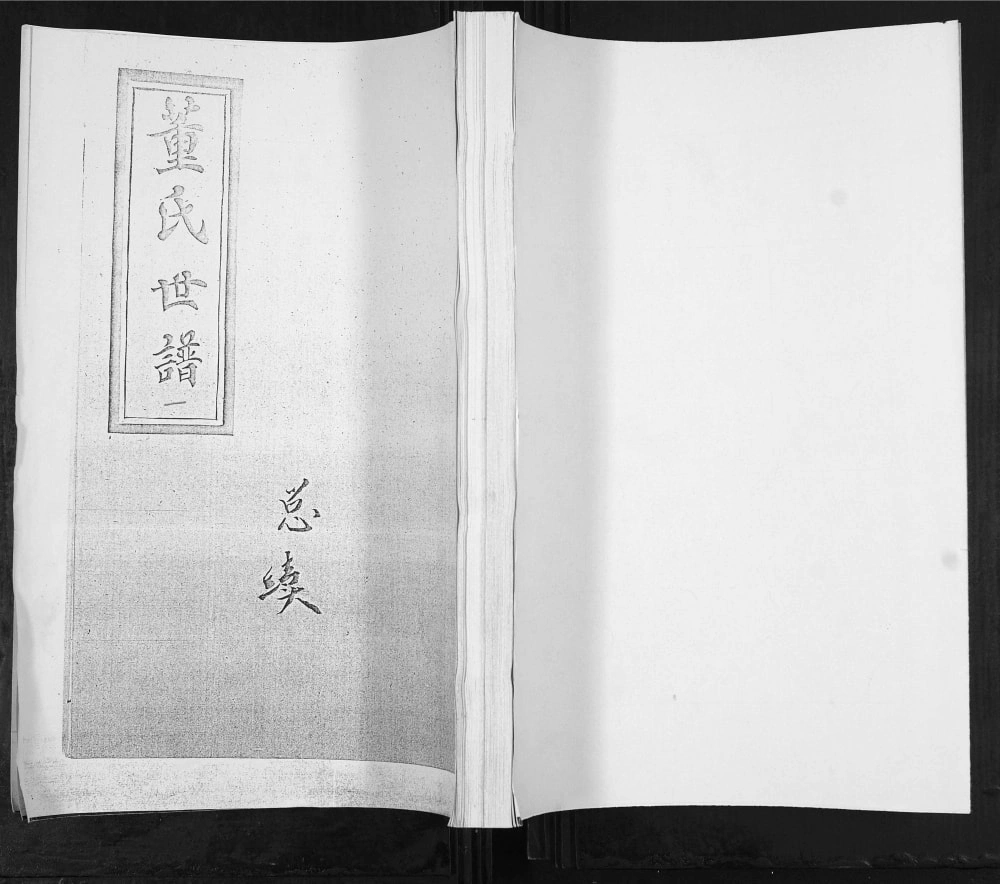 董氏世譜
一
总
续